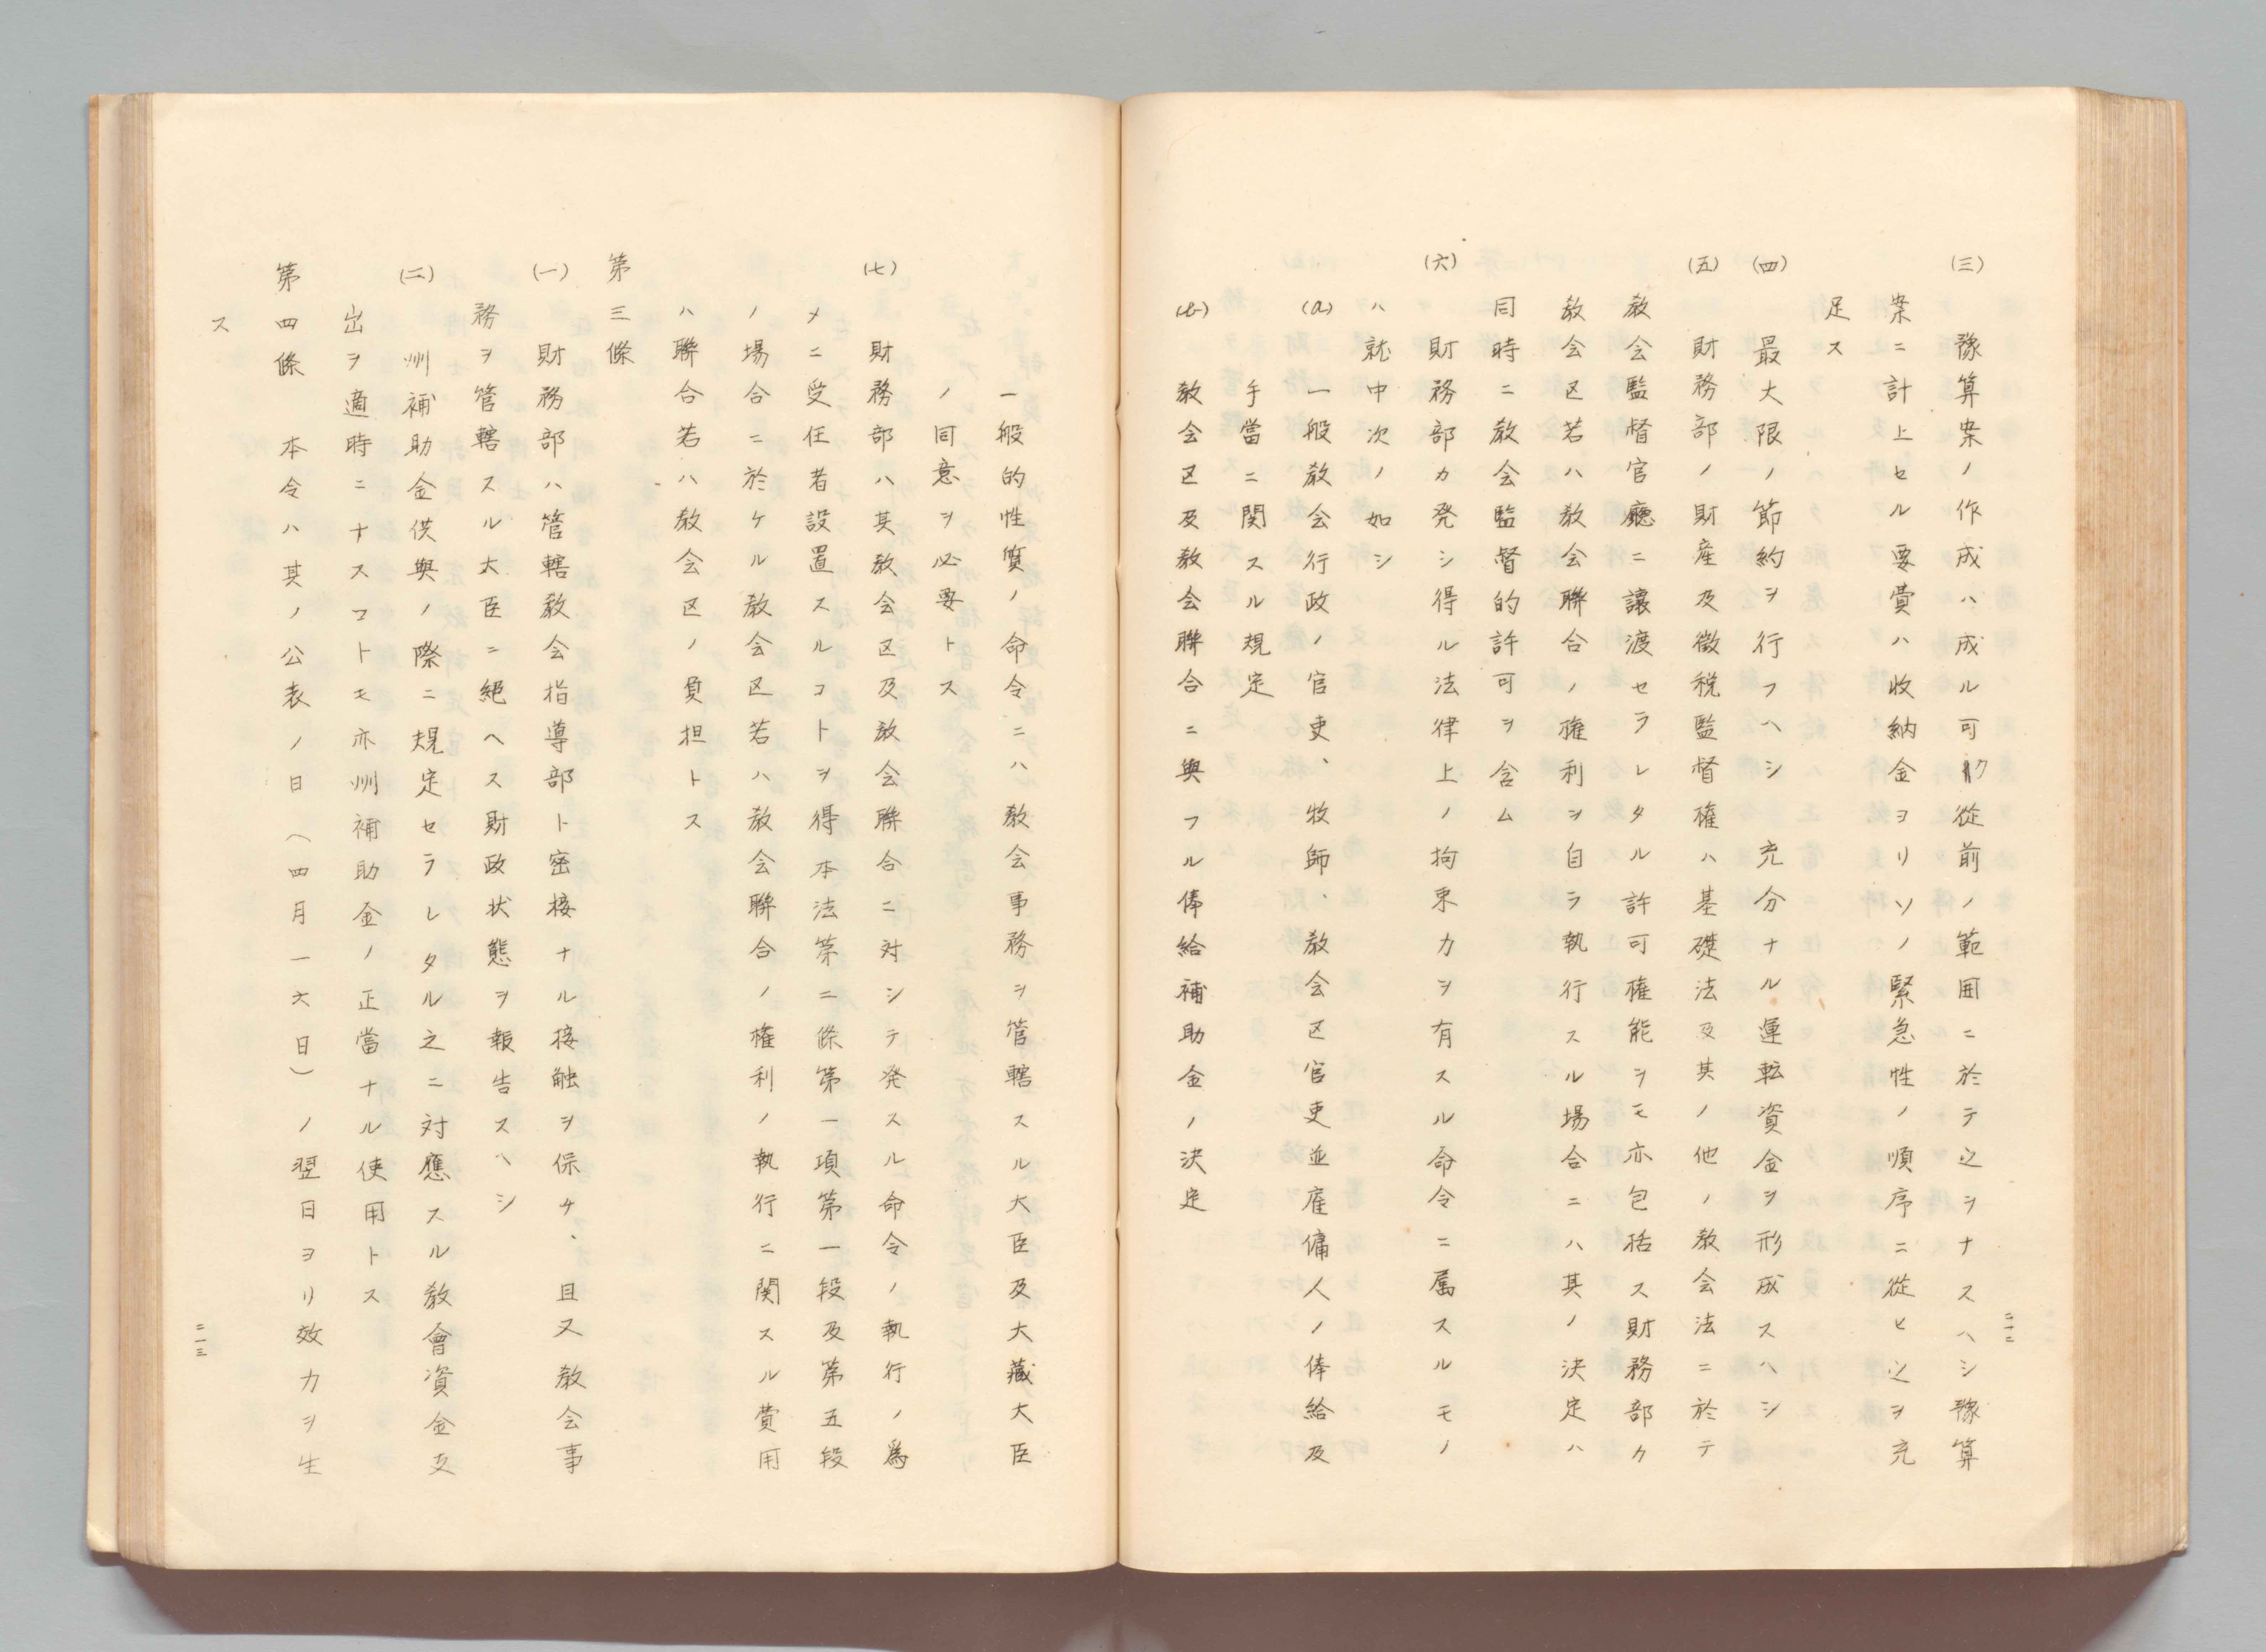 (三)　豫算案ノ作成ハ成ル可ク従前ノ範囲ニ於テ之ヲナスヘシ豫算
案ニ計上セル要費ハ收納金ヨリソノ緊急性ノ順序ニ從ヒ之ヲ充
足ス
(四)　最大限ノ節約ヲ行フヘシ　充分ナル運転資金ヲ形成スヘシ
(五)　財務部ノ財産及徴税監督権ハ基礎法及其ノ他ノ教会法ニ於テ
教会監督官廳ニ讓渡セラレタル許可権能ヲモ亦包括ス財務部カ
教会区若ハ教会聯合ノ権利ヲ自ラ執行スル場合ニハ其ノ決定ハ
同時ニ教会監督的許可ヲ含ム
(六)　財務部カ発シ得ル法律上ノ拘束力ヲ有スル命令ニ属スルモノ
ハ就中次ノ如シ
(a)　一般教会行政ノ官吏、牧師、教会区官吏並雇傭人ノ俸給及
手當ニ関スル規定
(b)　教会区及教会聯合ニ與フル俸給補助金ノ決定
二一二
一般的性質ノ命令ニハ教会事務ヲ管轄スル大臣及大藏大臣
ノ同意ヲ必要トス
(七)　財務部ハ其教会区及教会聯合ニ対シテ発スル命令ノ執行ノ爲
メニ受任者設置スルコトヲ得本法第二條第一項第一段及第五段
ノ場合ニ於ケル教会区若ハ教会聯合ノ権利ノ執行ニ関スル費用
ハ聯合若ハ教会区ノ負担トス
第三條
(一)　財務部ハ管轄教会指導部ト密接ナル接触ヲ保チ、且又教会事
務ヲ管轄スル大臣ニ絕ヘス財政状態ヲ報告スヘシ
(二)　州補助金供與ノ際ニ規定セラレタル之ニ対應スル教會資金支
出ヲ適時ニナスコトモ亦州補助金ノ正當ナル使用トス
第四條　本令ハ其ノ公表ノ日（四月一六日）ノ翌日ヨリ效力ヲ生
ス
二一三